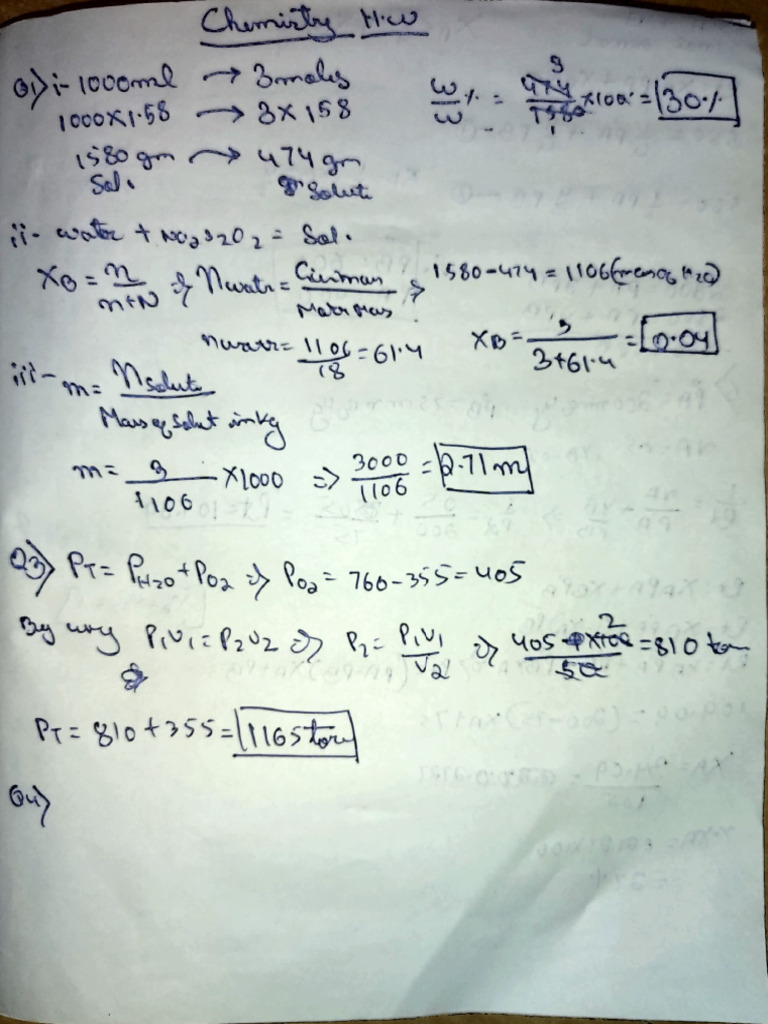 Chemistry H.W
Q1) i- 1000ml → 3moles
1000×1.58 → 3×158
1580 gm → 474 gm
Sol. Solute
w/w % = 474/1580 ×100 = 30%
ii- water + Na2S2O2 = Sol.
XB = n/n+N ⇒ Nwatr = Givenmas/Marr Mas ⇒ 1580-474 = 1106 (mass of H2O)
nwatr = 1106/18 = 61.4 XB = 3/3+61.4 = 0.04
iii- m = nsolute/Mass of Solut in kg
m = 3/1106 ×1000 ⇒ 3000/1106 = 2.71 m
Q3) PT = PH2O + PO2 ⇒ PO2 = 760-355 = 405
By P1V1 = P2V2 ⇒ P2 = P1V1/V2 ⇒ 405 ×100/50 2 = 810 torr
PT = 810 + 355 = 1165 torr
Q4)